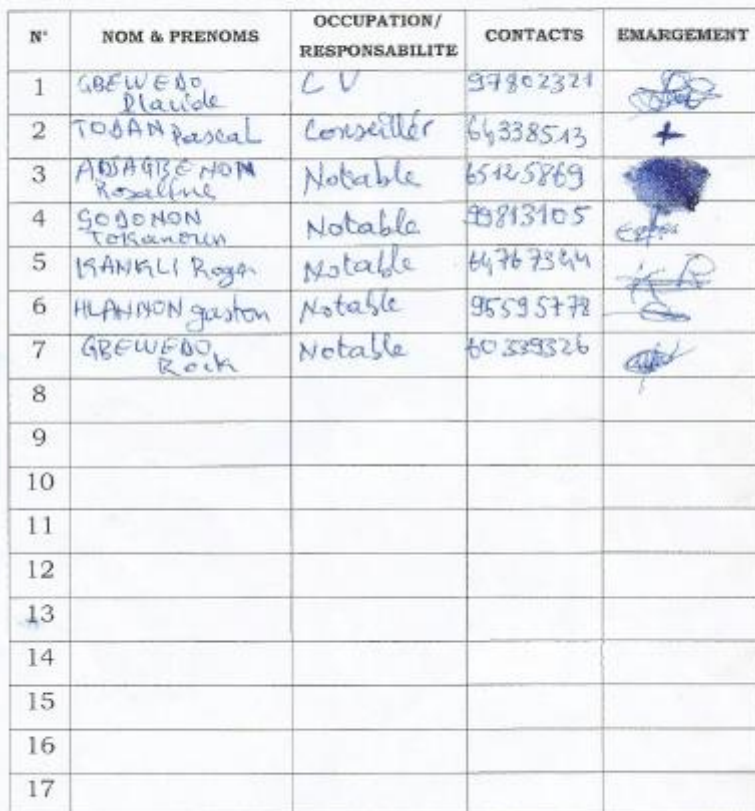 N° NOM & PRENOMS OCCUPATION/ RESPONSABILITE CONTACTS EMARGEMENT
1 GBEWEDO Placide CV 97802321
2 TODAN Pascal Conseiller 64338513 +
3 ADJAGBENON Rosaline Notable 65125869
4 GODONON Notable 99813105
5 KANKLI Roger Notable
6 HLANNON gaston Notable 95595778
7 GBEWEDO Rock Notable 60339326
8
9
10
11
12
13
14
15
16
17